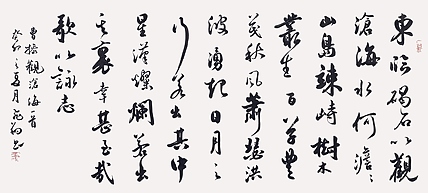 東臨碣石以觀
滄海水何澹々
山島竦峙樹木
叢生百草豐
茂秋風蕭瑟洪
波湧起日月之
行若出其中
星漢燦爛若出
其裏幸甚至哉
歌以詠志
曹操觀滄海一首
癸卯之夏月